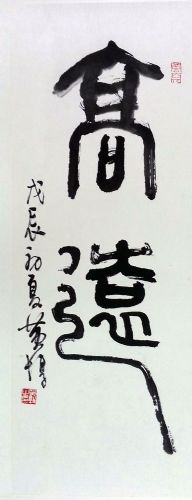 高遠
戊辰初夏黄惇